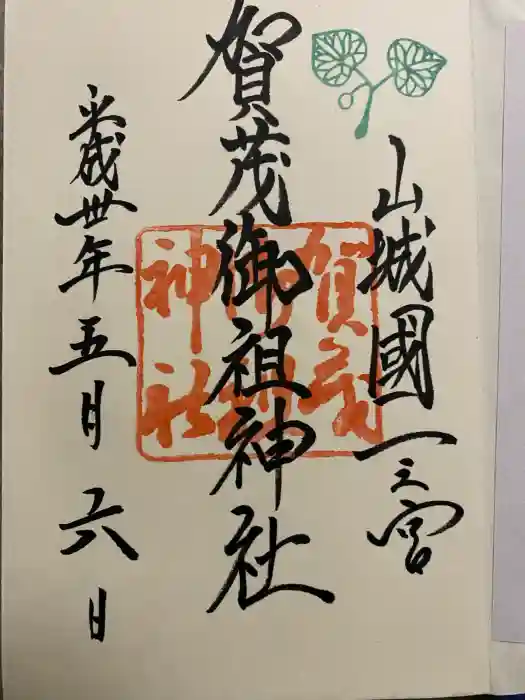 山城國一之宮
賀茂御祖神社
平成卅年五月六日
賀茂
御祖
神社